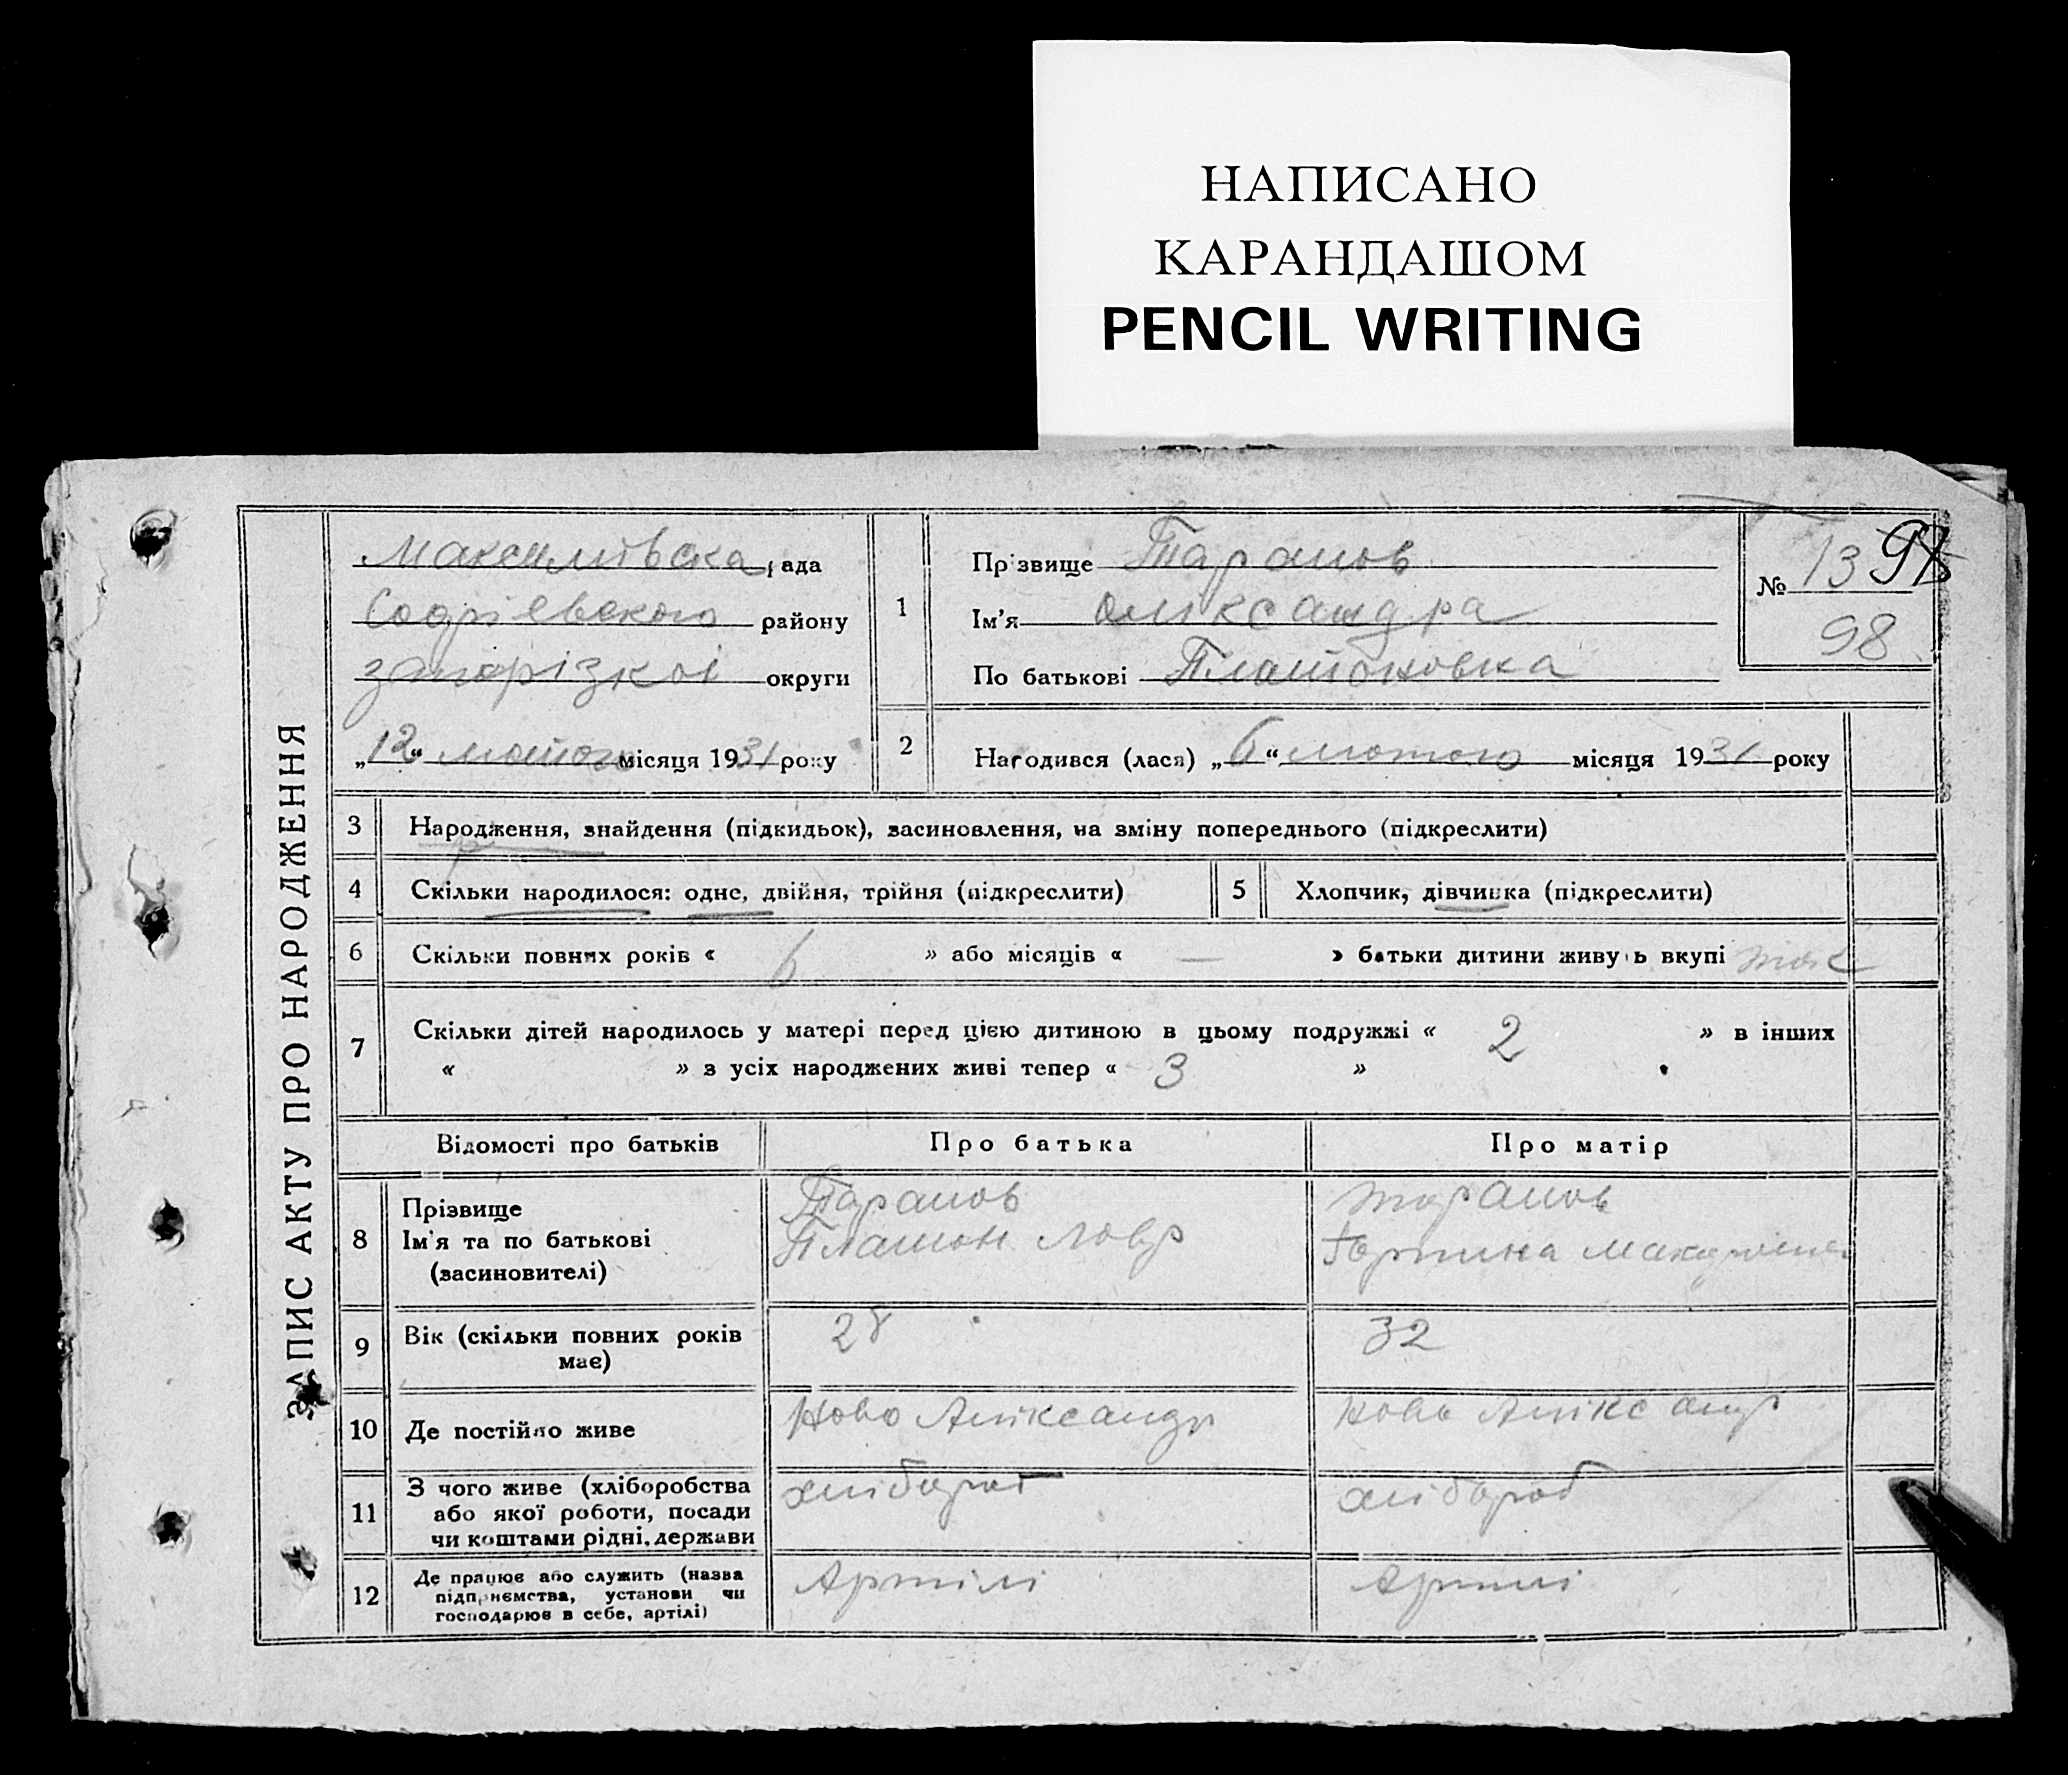 НАПИСАНО
КАРАНДАШОМ
PENCIL WRITING
ЗАПИС АКТУ ПРО НАРОДЖЕННЯ
Максимівска рада
району
запорізкоі округи
„12“ лютого місяця 1931 року
1
Прізвище Таранов
Ім'я Оліксандра
По батькові Платоновка
№ 13
98
2
Народився (лася) „6“ лютого місяця 1931 року
3 Народження, знайдення (підкидьок), засиновлення, на зміну попереднього (підкреслити)
4 Скільки народилося: одне, двійня, трійня (підкреслити) 5 Хлопчик, дівчинка (підкреслити)
6 Скільки повних років « 6 » або місяців « — » батьки дитини живуть вкупі так
7 Скільки дітей народилось у матері перед цією дитиною в цьому подружжі « 2 » в інших
« » з усіх народжених живі тепер « 3 » .
Відомості про батьків Про батька Про матір
8 Прізвище Таранов Таранов
Ім'я та по батькові Платон Лавр
(засиновителі)
9 Вік (скільки повних років має) 28 32
10 Де постійно живе Ново Аліксандр Ново Аліксандр
11 З чого живе (хліборобства
або якої роботи, посади
чи коштами рідні, держави хлібороб хлібороб
12 Де працює або служить (назва
підприємства, установи чи
господарює в себе, артілі) Артілі Артілі